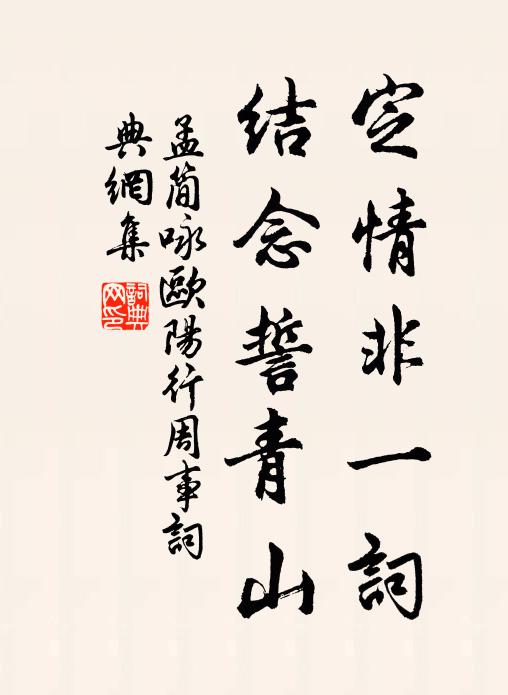 定情非一詞
結念誓青山
孟簡咏歐陽行周事詞
典網集
詞典
网印